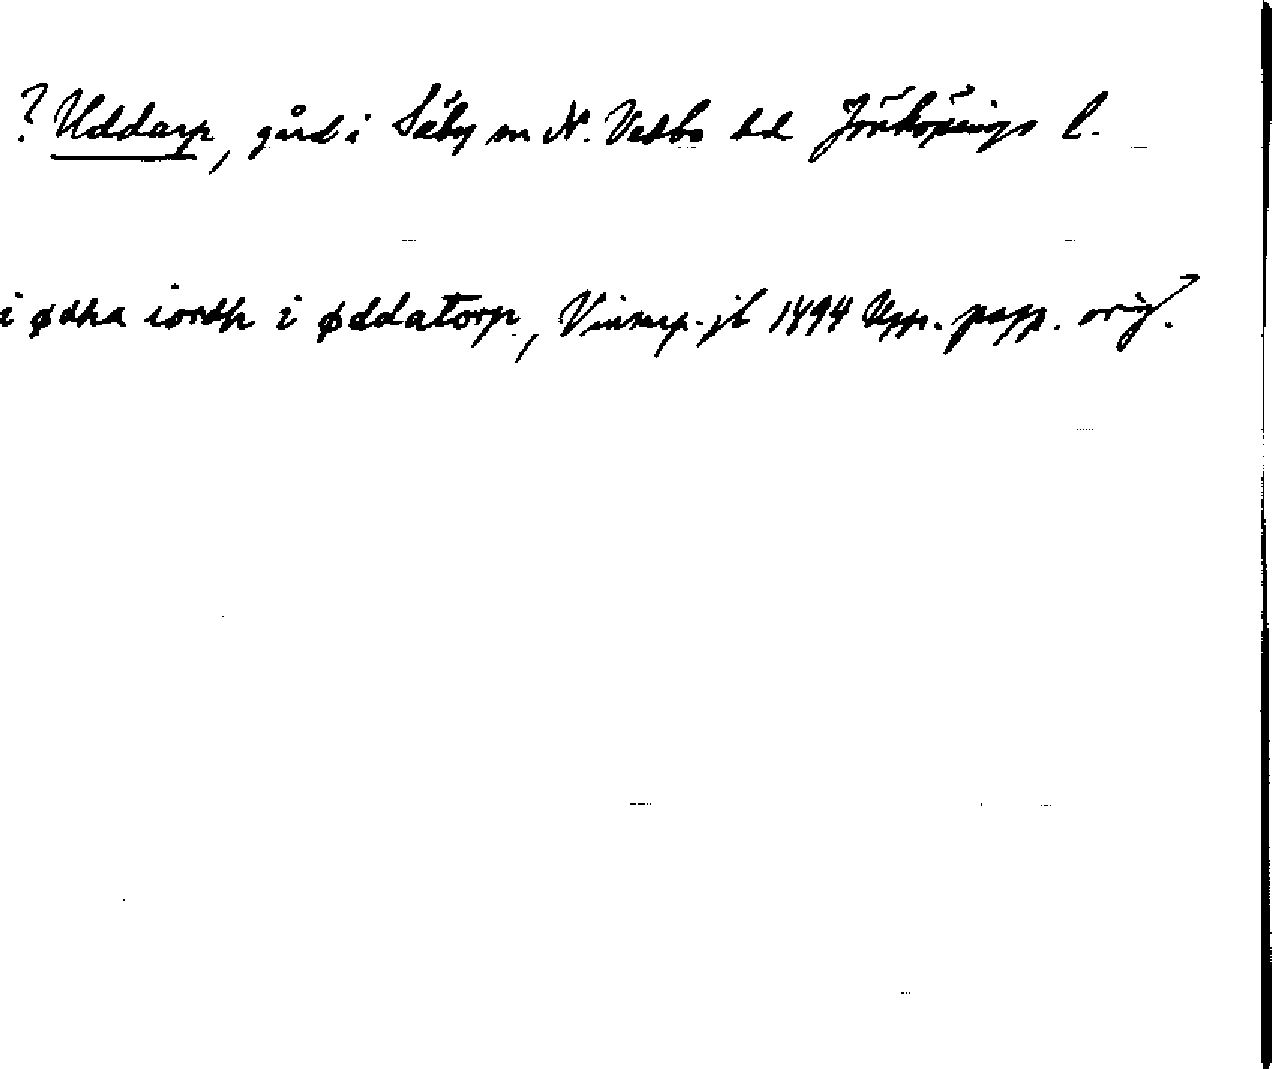 ? Uddarp, gård i Säby sn N. Vedbo hd Jönköpings l.
i ødha iordh i øddatorp, Vinsarp. jb 1494 Upp. papp. orig.